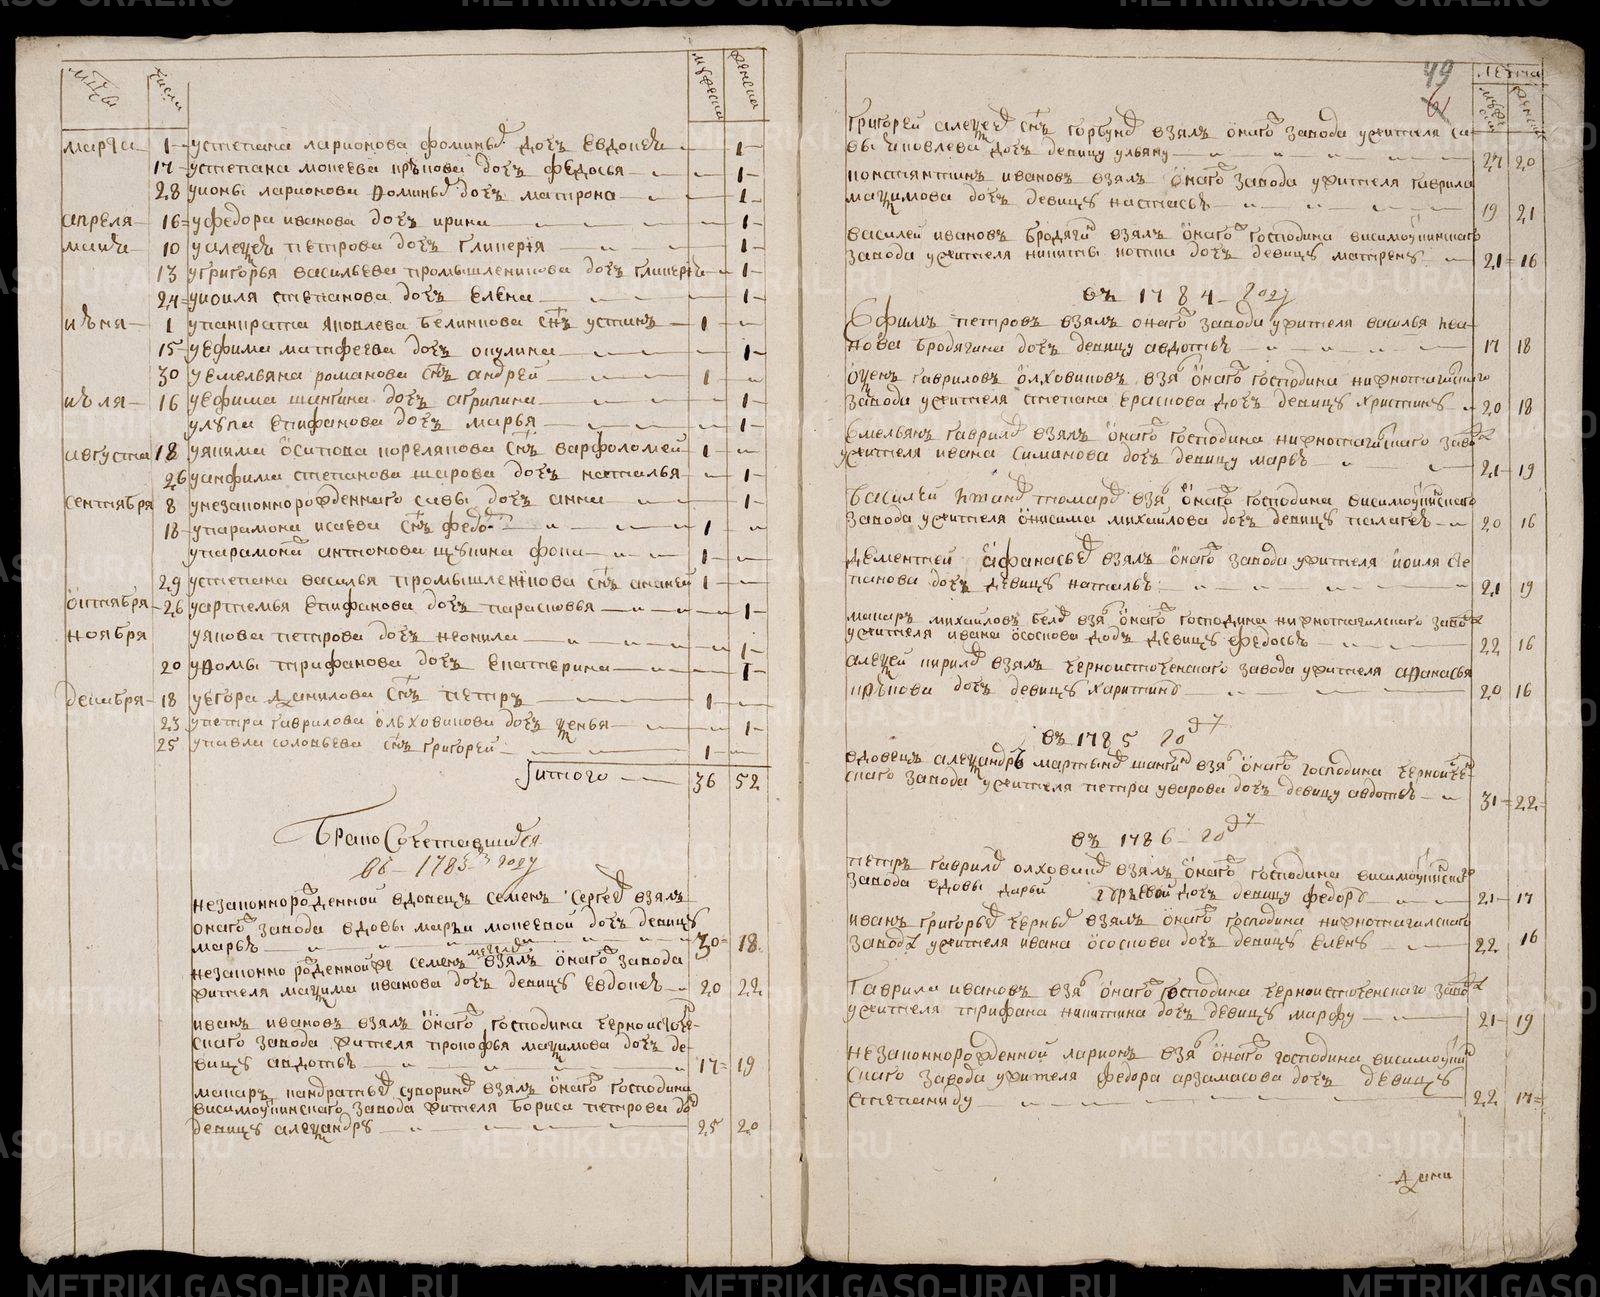 мцы
числа
мужеска
женска
марта 1 устепана ларионова фоминых дочь евдокея 1
17 устепана мокеева крюкова дочь федосья 1
28 уионы ларионова фоминых дочь матрона 1
апреля 16 уфедора иванова дочь ирина 1
маия 10 уалеѯея петрова дочь гликерїя 1
13 угригорья васильева промышленикова дочь гликерїя 1
24 уиоиля степанова дочь елена 1
июня 1 упанкрата яковлева беликова снъ устинъ 1
15 уефима матфеева дочь окулина 1
30 уемельяна романова снъ андрей 1
июля 16 уефима шангина дочь агрипина 1
улуки епифанова дочь марья 1
августа 18 уякима осипова корелякова снъ варфоломей 1
26 уанфима степанова шарова дочь наталья 1
сентября 8 унезаконнорожденнаго савы дочь анна 1
18 упарамона исаева снъ федо 1
упарамона антонова щукина фока 1
29 устепана василья промышленїкова снъ ананей 1
октября 26 уартемья епифанова дочь парасковья 1
ноября уякова петрова дочь неонила 1
20 уфомы трифанова дочь екатерина 1
декабря 18 уегора данилова снъ петръ 1
23 упетра гаврилова ольховикова дочь ѯенья 1
25 упавла соловьева снъ григорей 1
итого 36 52
Бракосочетавшихся
въ 1783 году
незаконнорожденной вдовецъ семенъ сергеев взялъ
онаго завода вдовы марьи мокеевой дочь девицу
марью 30 18
незаконно рожденной же семенъ взялъ онаго завода
жителя маѯима иванова дочь девицу евдокею 20 22
иванъ ивановъ взялъ онаго господина черноисточе-
скаго завода жителя прокофья маѯимова дочь де-
вицу авдотью 17 19
макаръ кандратьев суворинъ взялъ онаго господина
висимоуткинскаго завода жителя бориса петрова дочь
девицу алеѯандру 25 20
49
лѣта
мужеска
женска
григорей алеѯеев снъ горбунов взялъ онаго завода ужителя са-
вы яковлева дочь девицу ульяну 27 20
констянтинъ ивановъ взялъ онаго завода ужителя гаврила
маѯимова дочь девицу настасью 19 21
василей ивановъ бродягин взялъ онаго господина висимоуткинскаго
завода ужителя никиты дочь девицу матрену 21 16
въ 1784 году
Ефимъ петровъ взялъ онаго завода ужителя василья ива-
нова бродягина дочь девицу авдотью 17 18
гавриловъ олховиковъ взялъ онаго господина нижнотагилскаго
завода ужителя степана краснова дочь девицу христину 20 18
Емельянъ гаврилов взялъ онаго господина нижнотагилскаго завода
ужителя ивана симанова дочь девицу марью 21 19
Василей взялъ онаго господина висимоуткинскаго
завода ужителя онисима михайлова дочь девицу палагею 20 16
дементей афанасьев взялъ онаго завода ужителя иоиля сте
панова дочь девицу наталью 21 19
макаръ михайловъ взялъ онаго господина нижнотагилскаго завода
ужителя ивана ососкова дочь девицу федосью 22 16
алеѯей кирилов взялъ черноисточенскаго завода ужителя афанасья
крюкова дочь девицу харитину 20 16
въ 1785 году
вдовецъ алеѯандръ мартынов шангин взялъ онаго господина черноисточен-
скаго завода ужителя петра уварова дочь девицу авдотью 31 22
въ 1786 году
петръ гаврилов олховиков взялъ онаго господина висимоуткинскаго
завода вдовы дарьи дочь девицу федору 21 17
иванъ григорьев черных взялъ онаго господина нижнотагилскаго
завода ужителя ивана ососкова дочь девицу елену 22 16
Гаврила ивановъ взялъ онаго господина черноисточенскаго завода
ужителя трифана никитина дочь девицу марфу 21 19
незаконнорожденной ларионъ взялъ онаго господина висимоуткин
скаго завода ужителя федора арзамасова дочь девицу
степаниду 22 17